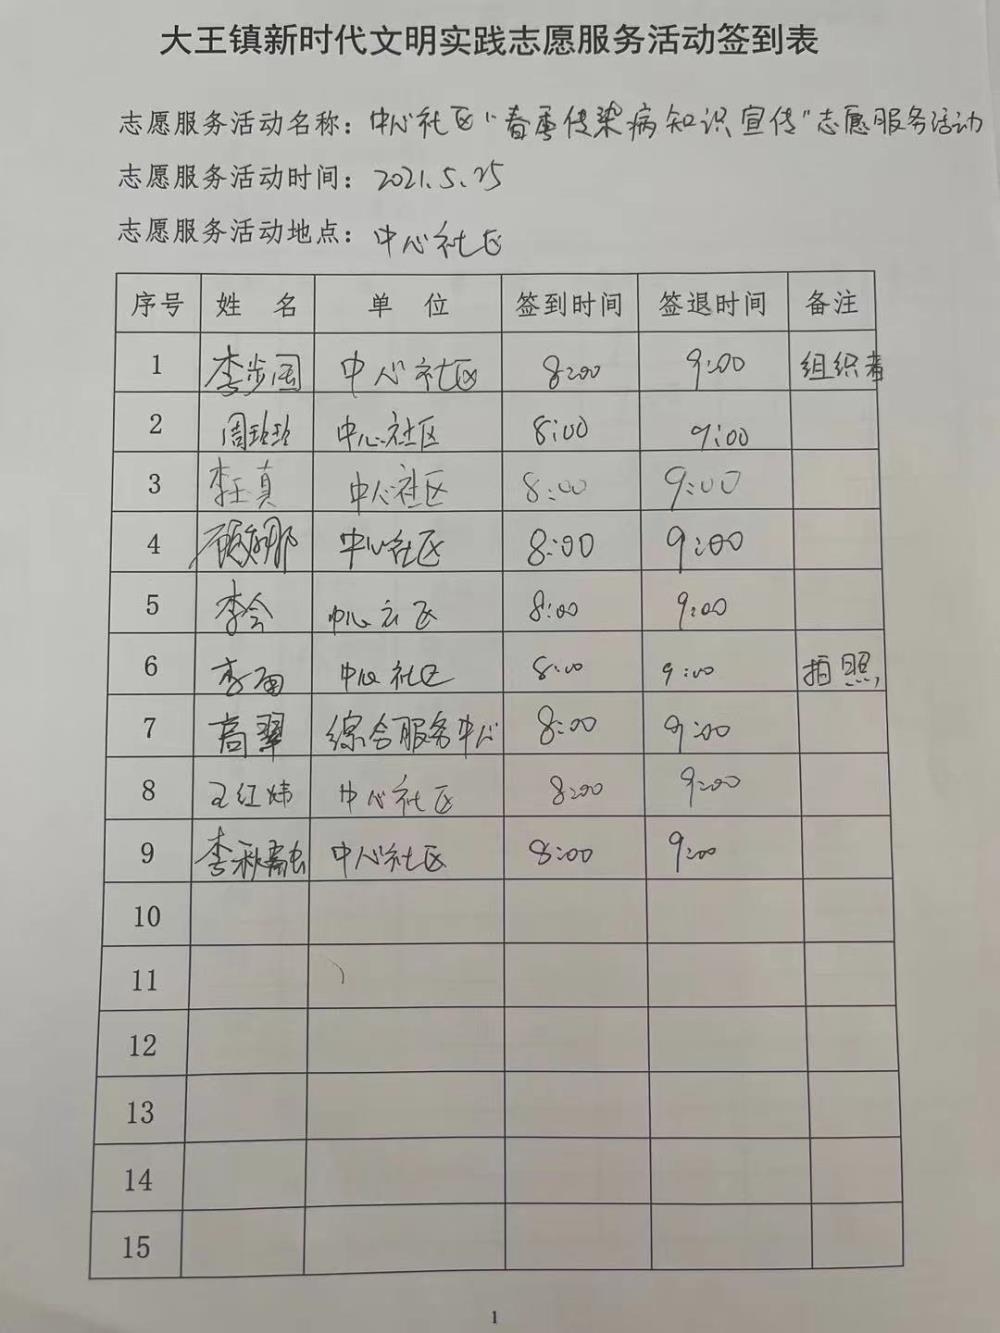 大王镇新时代文明实践志愿服务活动签到表
志愿服务活动名称：中心社区"春季传染病知识宣传"志愿服务活动
志愿服务活动时间：2021.5.25
志愿服务活动地点：中心社区
序号 姓 名 单 位 签到时间 签退时间 备注
1 李步国 中心社区 8:00 9:00 组织者
2 周玲玲 中心社区 8:00 9:00
3 李玉真 中心社区 8:00 9:00
4 中心社区 8:00 9:00
5 李会 中心社区 8:00 9:00
6 李雨 中心社区 8:00 9:00 拍照
7 高翠 综合服务中心 8:00 9:00
8 王红炜 中心社区 8:00 9:00
9 李秋 中心社区 8:00 9:00
10
11
12
13
14
15
1